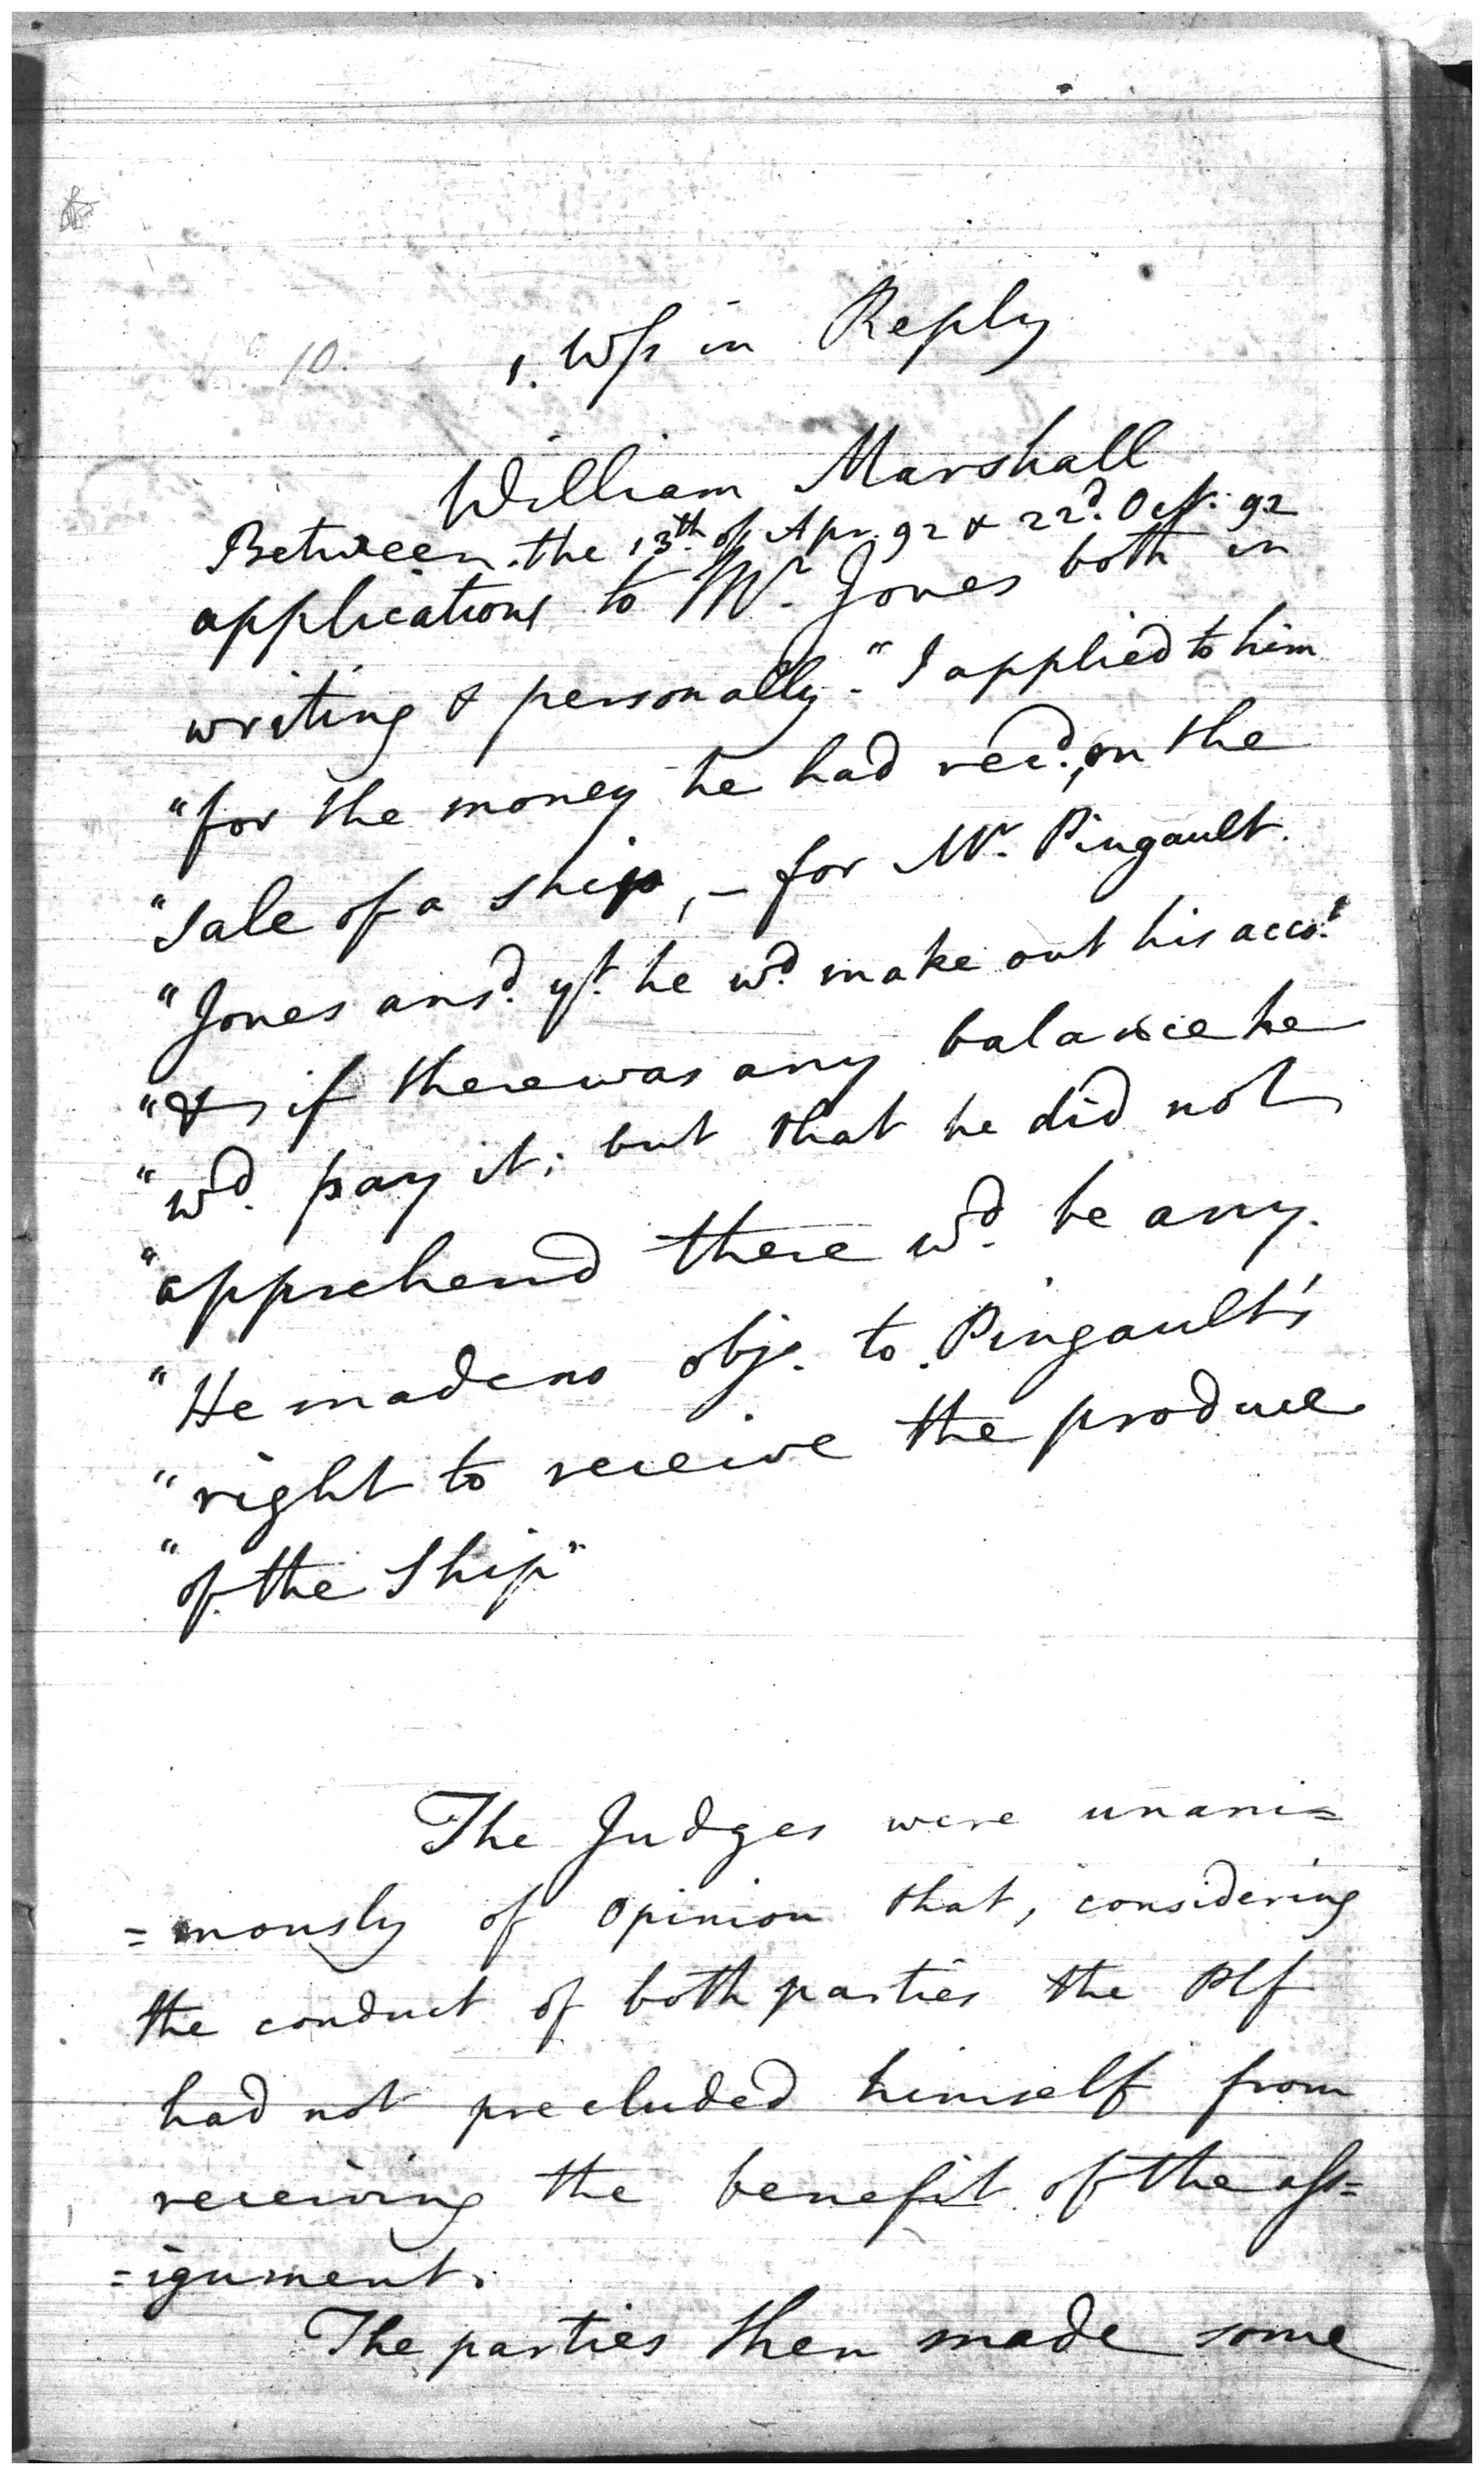 10.
1. Wss in Reply
William Marshall
Between the 13th. of Apr. 92 & 22d. Oct: 92
applications to Mr. Jones both in
writing & personally. "I applied to him
"for the money he had recd., on the
"sale of a ship, – for Mr. Pingault.
"Jones ansd. yt. he wd. make out his acco.t
"& if there was any balance he
"wd. pay it; but that he did not
"apprehend there wd. be any.
"He made no obj.n to Pingault's
"right to receive the produce
"of the Ship"
The Judges were unani=
=mously of Opinion that, considering
the conduct of both parties the Plf
had not precluded himself from
receiving the benefit of the ass=
=ignment.
The parties then made some